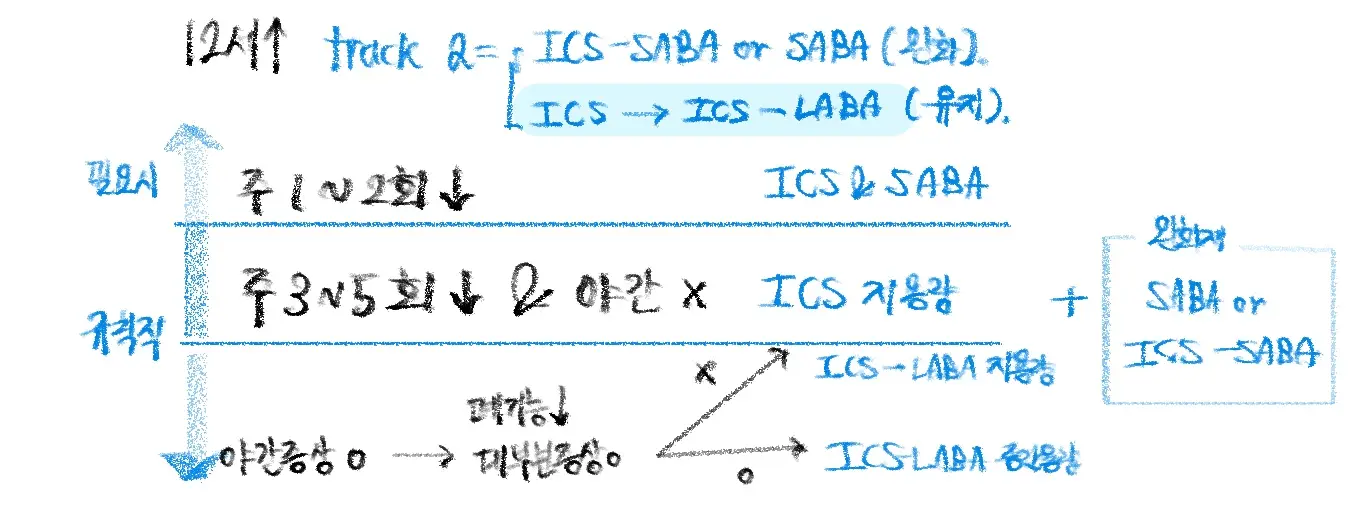 12세↑ track 2 = ICS-SABA or SABA (완화).
ICS → ICS-LABA (유지).
필요시
주 1~2회↓ ICS & SABA
규칙적
주 3~5회↓ & 야간 x ICS 저용량 +
완화제
SABA or
ICS-SABA
야간증상 o →
폐기능↓
대부분증상o
x ICS-LABA 저용량
o ICS-LABA 중간용량